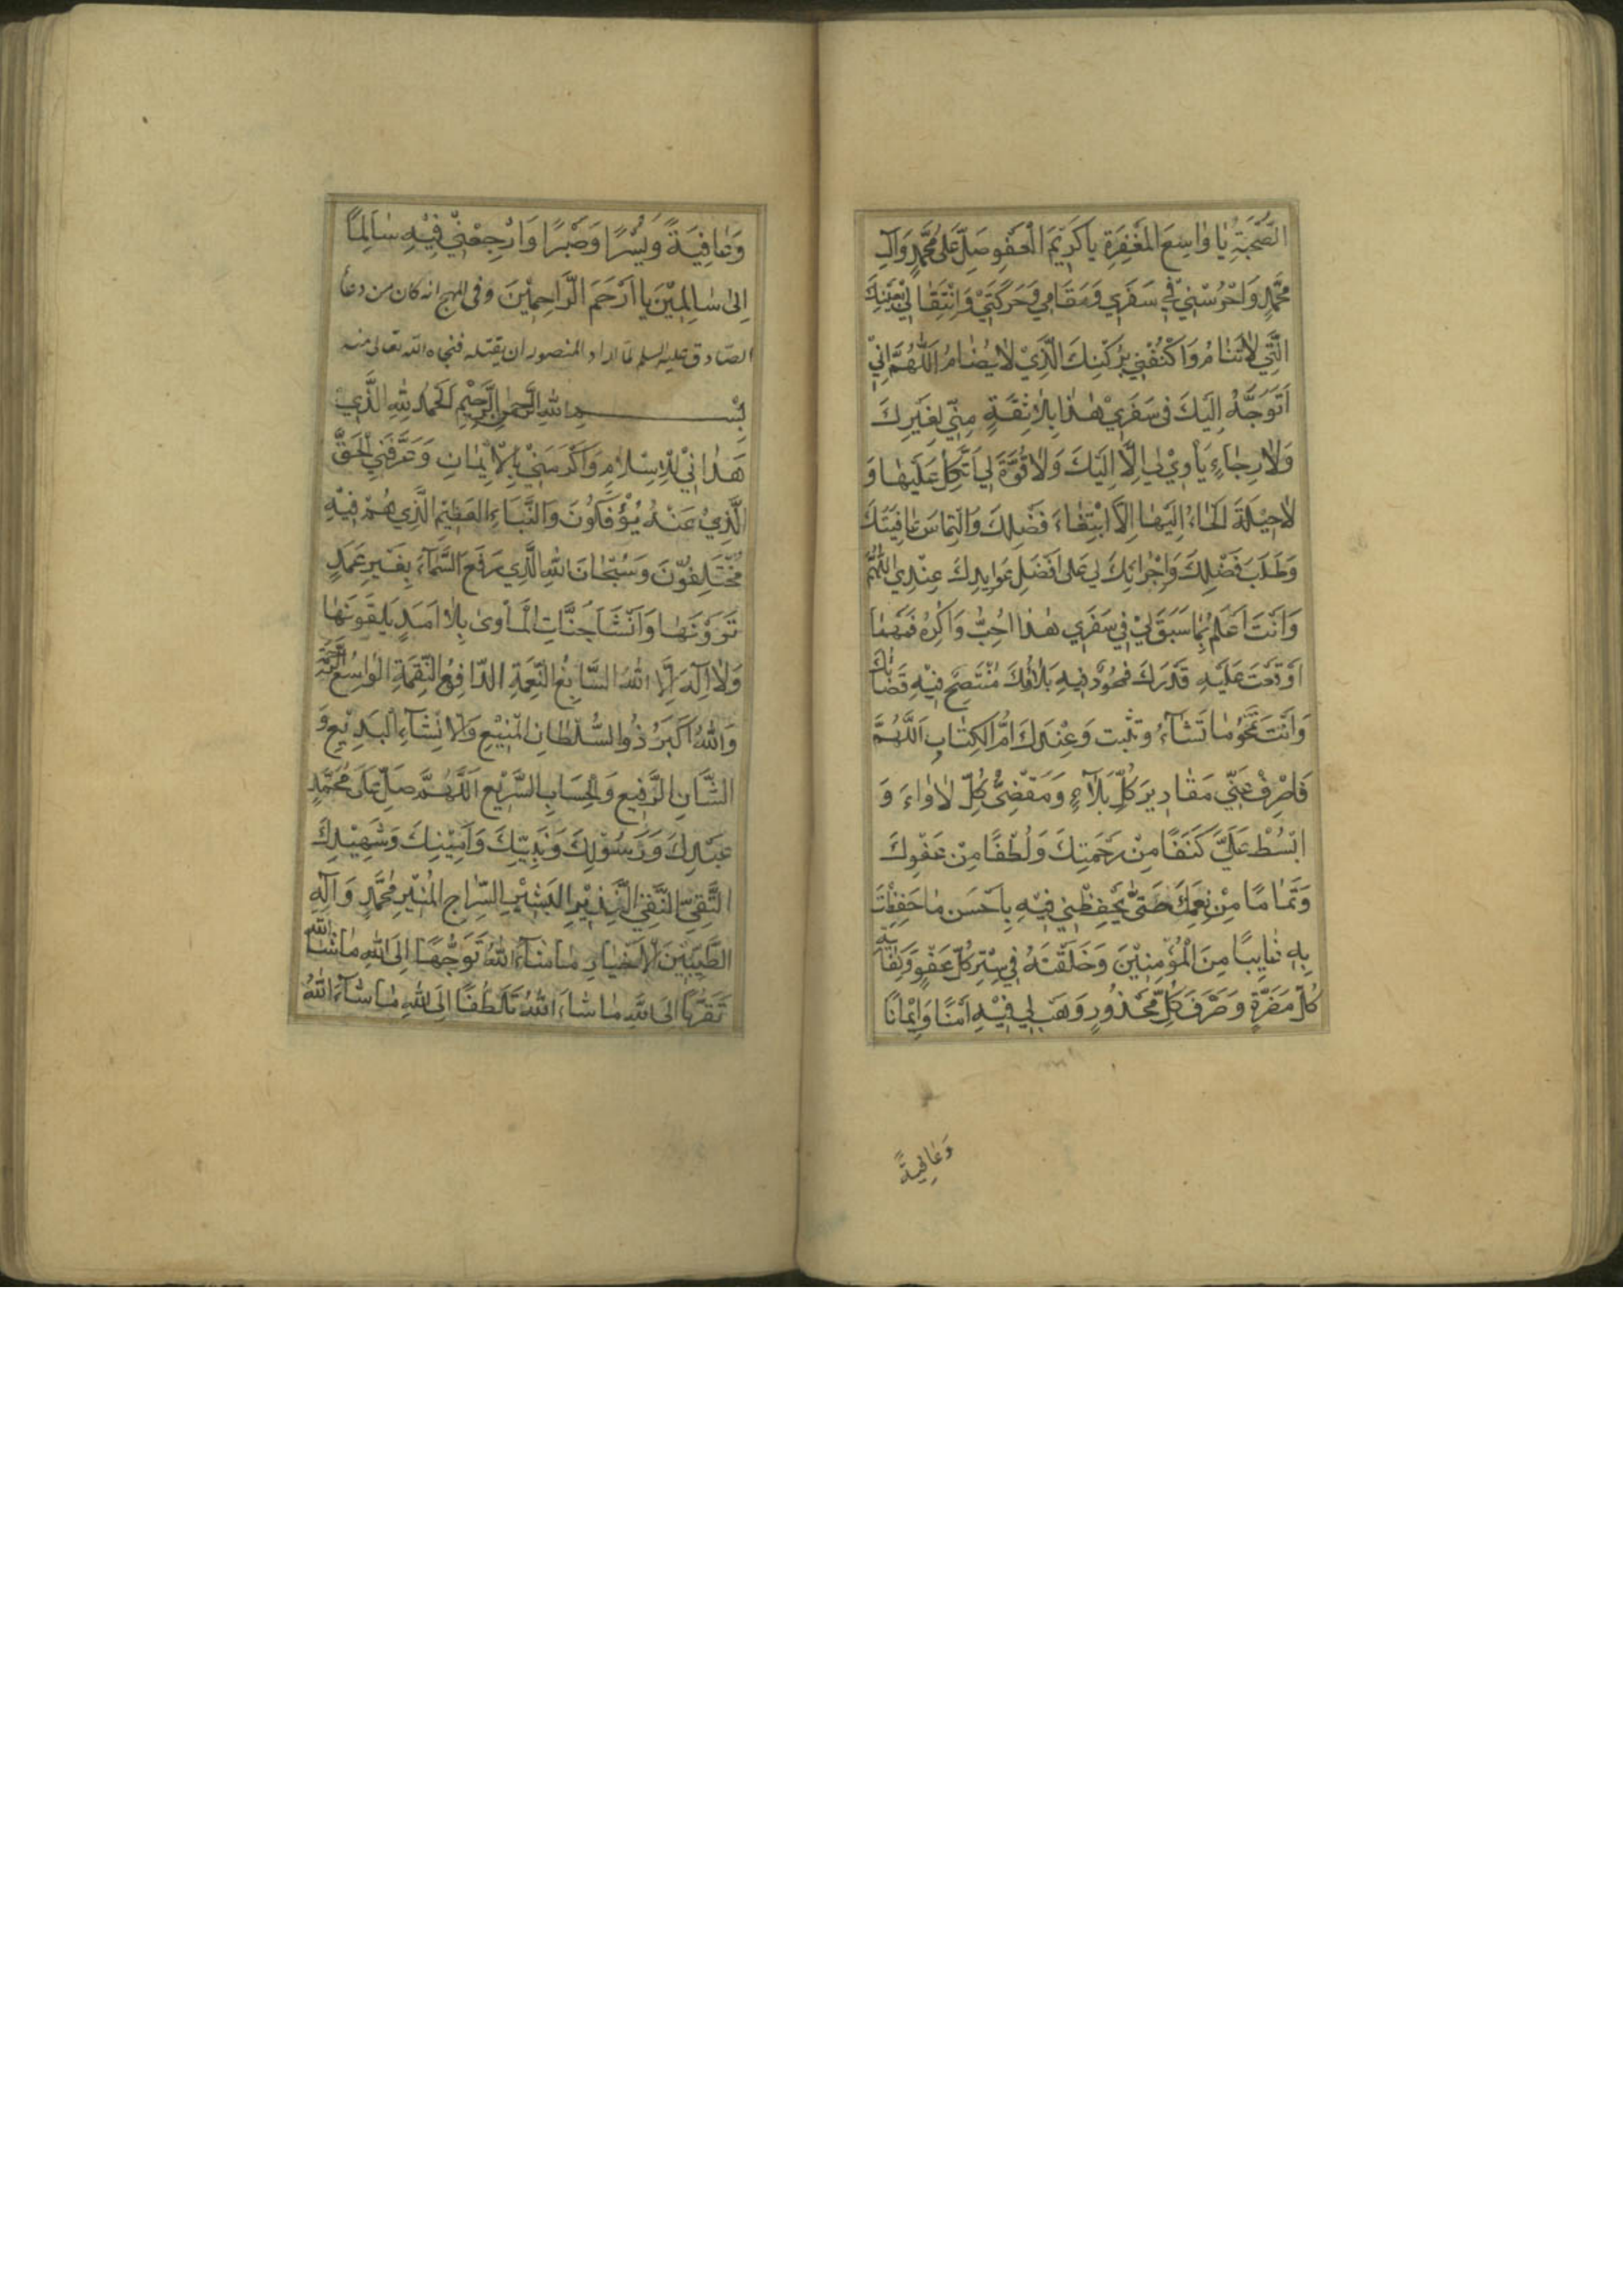 الصُّحْبَةِ يَا وَاسِعَ الْمَغْفِرَةِ يَا كَرِيمَ الْعَفْوِ صَلِّ عَلَى مُحَمَّدٍ وَآلِ
مُحَمَّدٍ وَاحْرُسْنِي فِي سَفَرِي وَمَقَامِي وَحَرَكَتِي وَانْتِقَالِي بِعَيْنِكَ
الَّتِي لَا تَنَامُ وَاكْنُفْنِي بِرُكْنِكَ الَّذِي لَا يُضَامُ اَللَّهُمَّ اِنِّي
اَتَوَجَّهُ اِلَيْكَ فِي سَفَرِي هٰذَا بِلَا ثِقَةٍ مِنِّي لِغَيْرِكَ
وَلَا رَجَاءٍ يَأْوِي بِي اِلَّا اِلَيْكَ وَلَا قُوَّةَ لِي اَتَّكِلُ عَلَيْهَا وَ
لَا حِيلَةَ اَلْجَاءُ اِلَيْهَا اِلَّا ابْتِغَاءَ فَضْلِكَ وَالْتِمَاسَ عَافِيَتِكَ
وَطَلَبَ فَضْلِكَ وَاِجْرَائِكَ لِي عَلَى اَفْضَلِ عَوَايِدِكَ عِنْدِي اَللّٰهُمَّ
وَاَنْتَ اَعْلَمُ بِمَا سَبَقَ لِي فِي سَفَرِي هٰذَا اُحِبُّ وَاَكْرَهُ فَمَهْمَا
اَوْقَعْتَ عَلَيْهِ قَدَرَكَ فَمَحْمُودٌ فِيهِ بَلَاؤُكَ مُنْتَصِحٌ فِيهِ قَضَاؤُكَ
وَاَنْتَ تَمْحُو مَا تَشَاءُ وَتُثْبِتُ وَعِنْدَكَ اُمُّ الْكِتَابِ اَللَّهُمَّ
فَاصْرِفْ عَنِّي مَقَادِيرَ كُلِّ بَلَاءٍ وَمَقْضِيَّ كُلِّ لَأْوَاءَ وَ
ابْسُطْ عَلَيَّ كَنَفًا مِنْ رَحْمَتِكَ وَلُطْفًا مِنْ عَفْوِكَ
وَتَمَامًا مِنْ نِعَمِكَ حَتَّى تَحْفَظَنِي فِيهِ بِاَحْسَنِ مَا حَفِظْتَ
بِهِ غَايِبًا مِنَ الْمُؤْمِنِينَ وَخَلَفْتَهُ فِي سِتْرِ كُلِّ عَفْوٍ وَكِفَايَةِ
كُلِّ مَضَرَّةٍ وَصَرْفِ كُلِّ مَحْذُورٍ وَهَبْ لِي فِيهِ اَمْنًا وَاِيمَانًا
وَعَافِيَةً
وَعَافِيَةً وَيُسْرًا وَصَبْرًا وَارْجِعْنِي فِيهِ سَالِمًا
اِلَى سَالِمِينَ يَا اَرْحَمَ الرَّاحِمِينَ وفى المهج انه كان من دعاء
الصادق عليه السلم لما اراد المنصور ان يقتله فنجاه الله تعالى منه
بِسْمِ اللهِ الرَّحْمٰنِ الرَّحِيمِ اَلْحَمْدُ لِلّٰهِ الَّذِي
هَدَانِي لِلْاِسْلَامِ وَاَكْرَمَنِي بِالْاِيمَانِ وَعَرَّفَنِي الْحَقَّ
الَّذِي عَنْهُ يُؤْفَكُونَ وَالنَّبَاءِ الْعَظِيمِ الَّذِي هُمْ فِيهِ
مُخْتَلِفُونَ وَسُبْحَانَ اللهِ الَّذِي رَفَعَ السَّمَاءَ بِغَيْرِ عَمَدٍ
تَرَوْنَهَا وَاَنْشَأَ جَنَّاتِ الْمَأْوَى بِلَا اَمَدٍ يَلْقَوْنَهَا
وَلَا اِلٰهَ اِلَّا اللهُ السَّابِغُ النِّعْمَةِ الدَّافِعُ النِّقْمَةِ الْوَاسِعُ الرَّحْمَةِ
وَاللهُ اَكْبَرُ ذُو السُّلْطَانِ الْمَنِيعِ وَالْاِنْشَاءِ الْبَدِيعِ وَ
الشَّانِ الرَّفِيعِ وَالْحِسَابِ السَّرِيعِ اَللّٰهُمَّ صَلِّ عَلَى مُحَمَّدٍ
عَبْدِكَ وَرَسُولِكَ وَنَبِيِّكَ وَاَمِينِكَ وَشَهِيدِكَ
التَّقِيِّ النَّقِيِّ النَّذِيرِ الْبَشِيرِ السِّرَاجِ الْمُنِيرِ مُحَمَّدٍ وَآلِهِ
الطَّيِّبِينَ الْاَخْيَارِ مَا شَاءَ اللهُ تَوَجُّهًا اِلَى اللهِ مَا شَاءَ اللهُ
تَقَرُّبًا اِلَى اللهِ مَا شَاءَ اللهُ تَلَطُّفًا اِلَى اللهِ مَا شَاءَ اللهُ